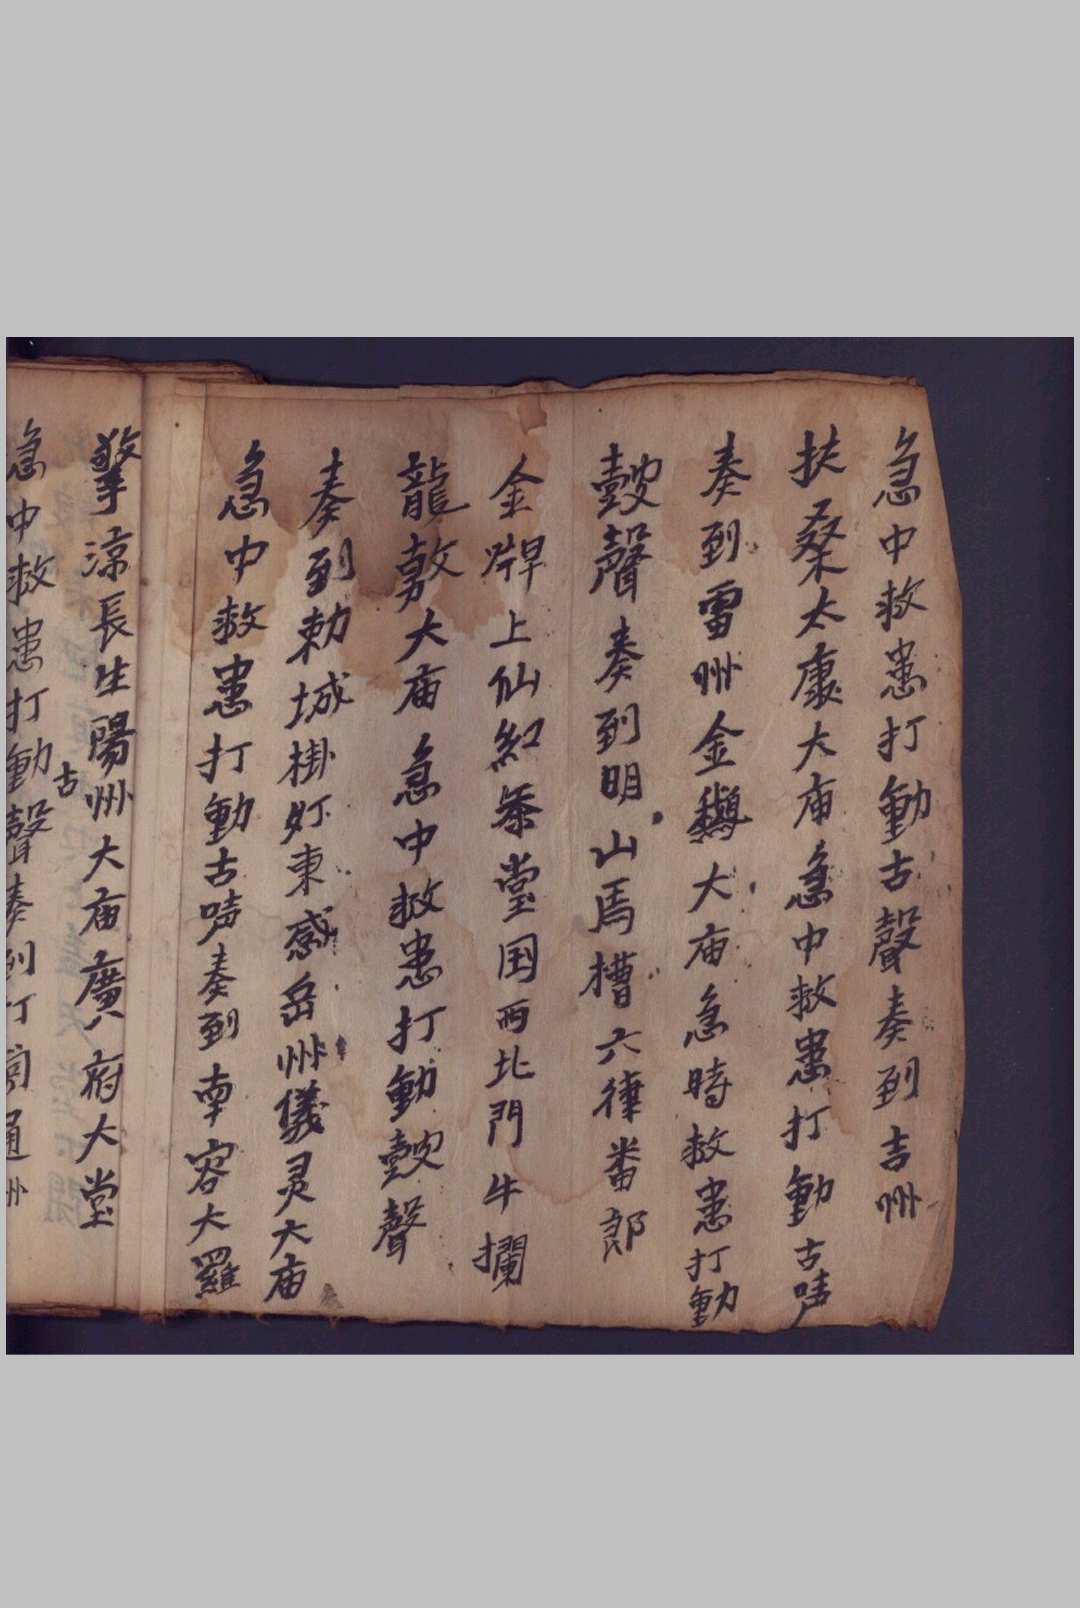 急中救患打動古聲奏到吉州
扶桑太康大庙急中救患打動古唕
奏到雷州金鵝大庙急時救患打動
鼓聲奏到明山馬槽六律番郎
金牌上仙紅泰堂国西北門牛欄
龍大庙急中救患打動鼓聲
奏到勅城掛灯東感岳州儀灵大庙
急中救患打動古唕奏到南容大羅
擎涼長生陽州大庙廣府大堂
急中救患打動古聲奏到